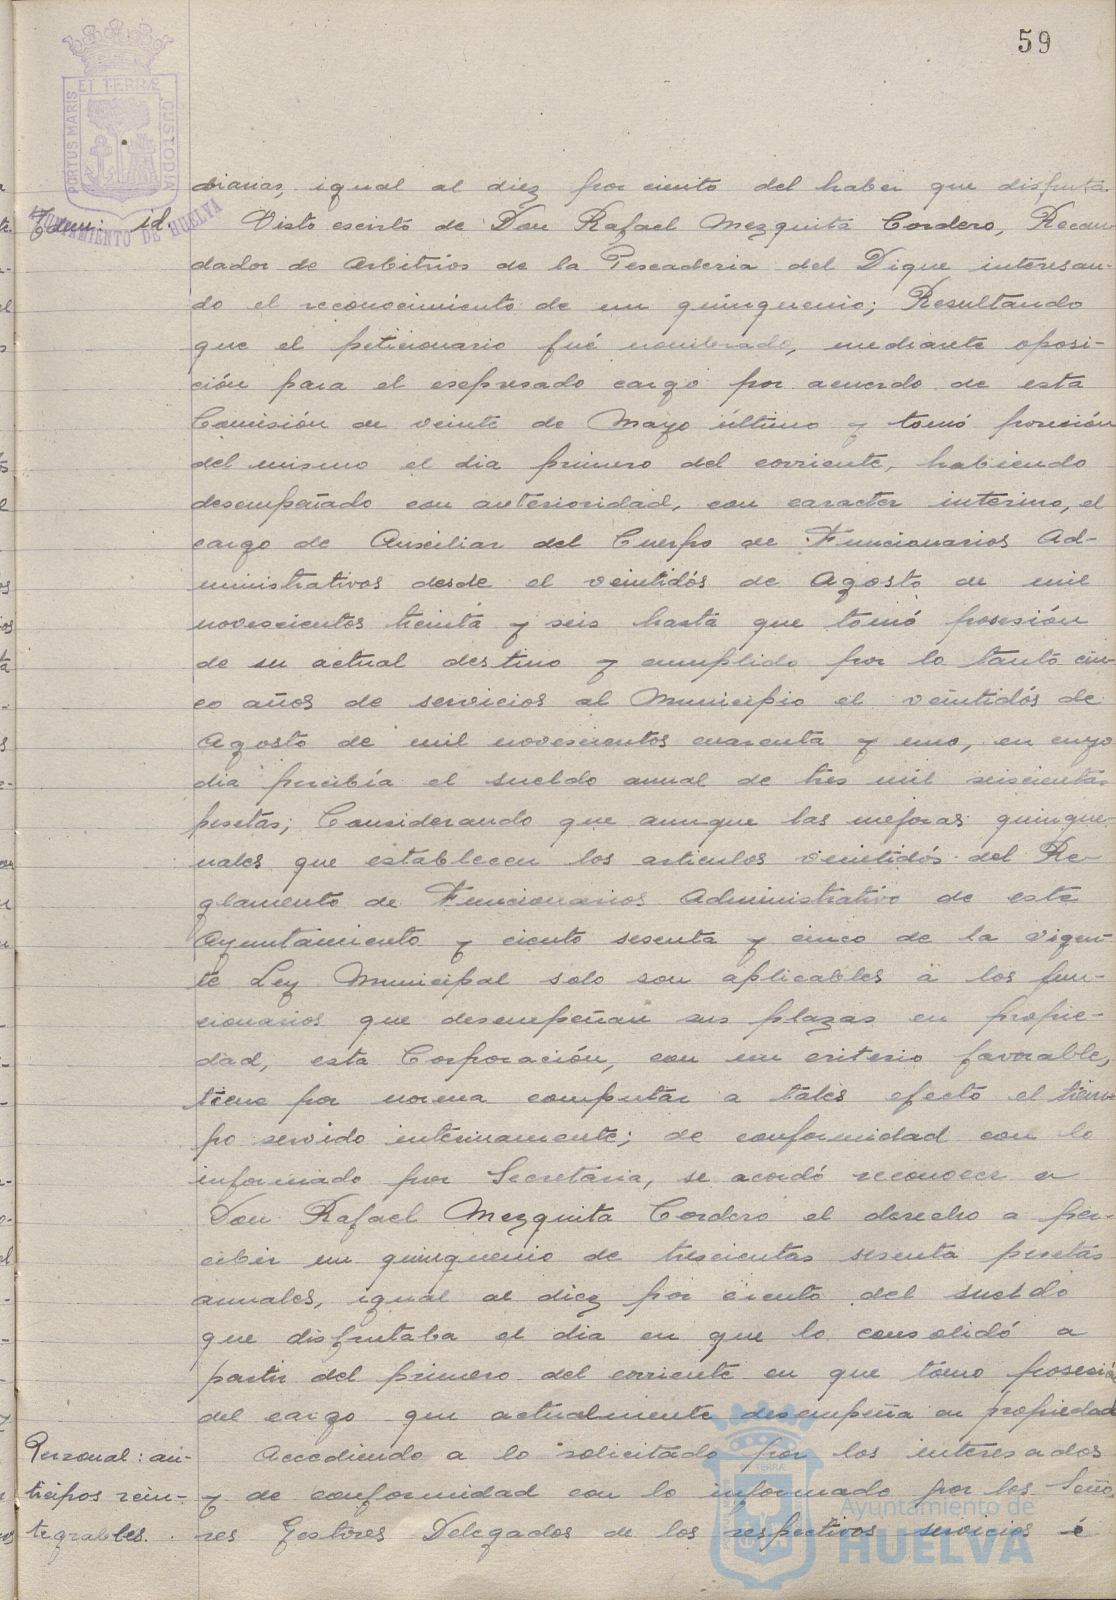 59
PORTUS MARIS ET TERRÆ CUSTODIA
AYUNTAMIENTO DE HUELVA
diarias, igual al diez por ciento del haber que disfruta.
Idem: id. Visto escrito de Don Rafael Mezquita Cordero, Recau-
dador de Arbitrios de la Pescaderia del Dique interesan-
do el reconocimiento de un quinquenio; Resultando
que el peticionario fué nombrado, mediante oposi-
ción para el expresado cargo por acuerdo de esta
Comisión de veinte de Mayo último y tomó posesión
del mismo el dia primero del corriente, habiendo
desempeñado con anterioridad, con caracter interino, el
cargo de Auxiliar del Cuerpo de Funcionarios Ad-
ministrativos desde el veintidós de Agosto de mil
novecientos treinta y seis hasta que tomó posesión
de su actual destino y cumplido por lo tanto cin-
co años de servicios al Municipio el veintidós de
Agosto de mil novecientos cuarenta y uno, en cuyo
dia percibía el sueldo anual de tres mil seiscientas
pesetas; Considerando que aunque las mejoras quinque-
nales que establecen los articulos veintidós del Re-
glamento de Funcionarios Administrativo de este
Ayuntamiento y ciento sesenta y cinco de la vigen-
te Ley Municipal solo son aplicables a los fun-
cionarios que desempeñan sus plazas en propie-
dad, esta Corporación, con un criterio favorable,
tiene por norma computar a tales efecto el tiem-
po servido interinamente; de conformidad con lo
informado por Secretaria, se acordó reconocer a
Don Rafael Mezquita Cordero el derecho a per-
cibir un quinquenio de trescientas sesenta pesetas
anuales, igual al diez por ciento del sueldo
que disfrutaba el dia en que lo consolidó a
partir del primero del corriente en que tomo posesión
del cargo que actualmente desempeña en propiedad
Personal: an- Accediendo a lo solicitado por los interesados
ticipos rein- y de conformidad con lo informado por los Seño
tegrables. res Gestores Delegados de los respectivos servicios é
Ayuntamiento de
HUELVA